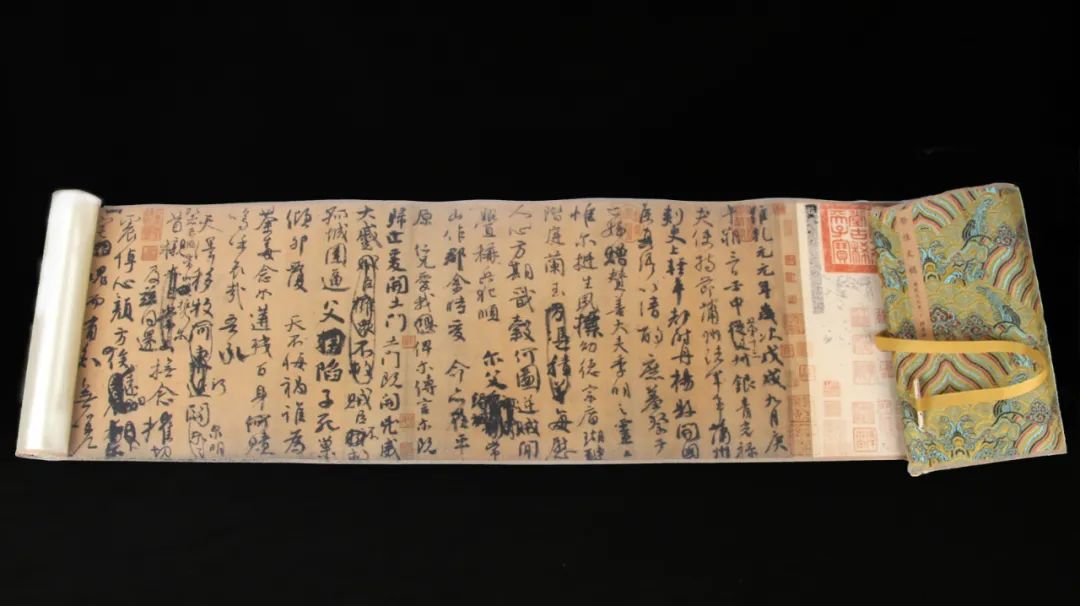 祭姪文稿
維乾元元年歲次戊戌九月庚
午朔三日壬申第十三叔銀青光祿
夫使持節蒲州諸軍事蒲州
刺史上輕車都尉丹楊縣開國
侯真卿以清酌庶羞祭于
亡姪贈贊善大夫季明之靈
惟爾挺生夙標幼德宗廟瑚璉
階庭蘭玉每慰
人心方期戩穀何圖逆賊間
釁稱兵犯順爾父竭誠常
山作郡余時受命亦在平
原仁兄愛我俾爾傳言爾既
歸止爰開土門土門既開凶威
大蹙賊臣不救
孤城圍逼父陷子死巢
傾卵覆天不悔禍誰為
荼毒念爾遘殘百身何贖
嗚乎哀哉吾承
天澤移牧河關泉明
首櫬及茲同還撫念摧切
震悼心顏方俟
魂而有知無嗟